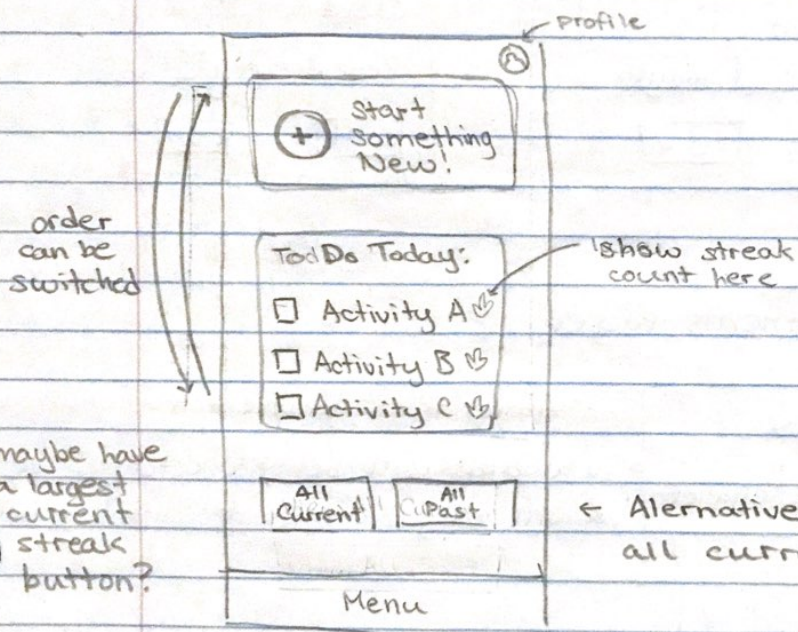 profile
Start
Something
New!
order
can be
switched
To Do Today:
show streak
count here
Activity A
Activity B
Activity C
maybe have
a largest
current
streak
button?
All
Current
All
Past
← Alernative
all curr
Menu